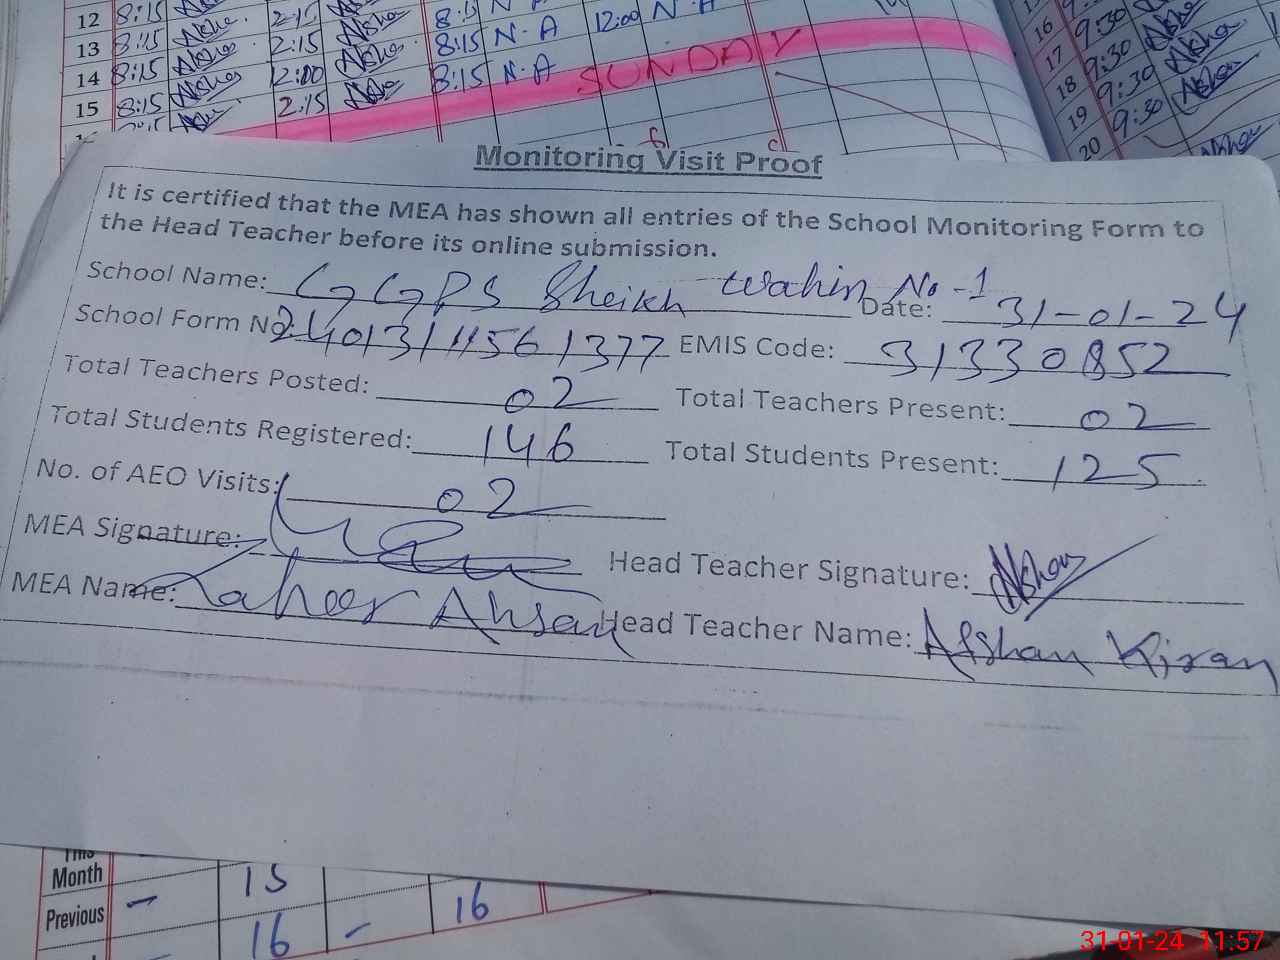 12 8:15 2:15 8:15 N.A 12:00 N.A
13 8:15 2:15 8:15 N.A
14 8:15 2:00 8:15 N.A
15 8:15 2:15
SUNDAY
16 9:30
17 9:30
18 9:30
19 9:30
20
Monitoring Visit Proof
It is certified that the MEA has shown all entries of the School Monitoring Form to
the Head Teacher before its online submission.
School Name: GGPS Sheikh wahin No-1 Date: 31-01-24
School Form No: EMIS Code: 31330852
Total Teachers Posted: 02 Total Teachers Present: 02
Total Students Registered: 146 Total Students Present: 125
No. of AEO Visits: 02
MEA Signature: Head Teacher Signature: Afshan
MEA Name: Zaheer Ahsan Head Teacher Name: Afshan Kiran
This
Month - 15
Previous - 16 - 16
31-01-24 11:57